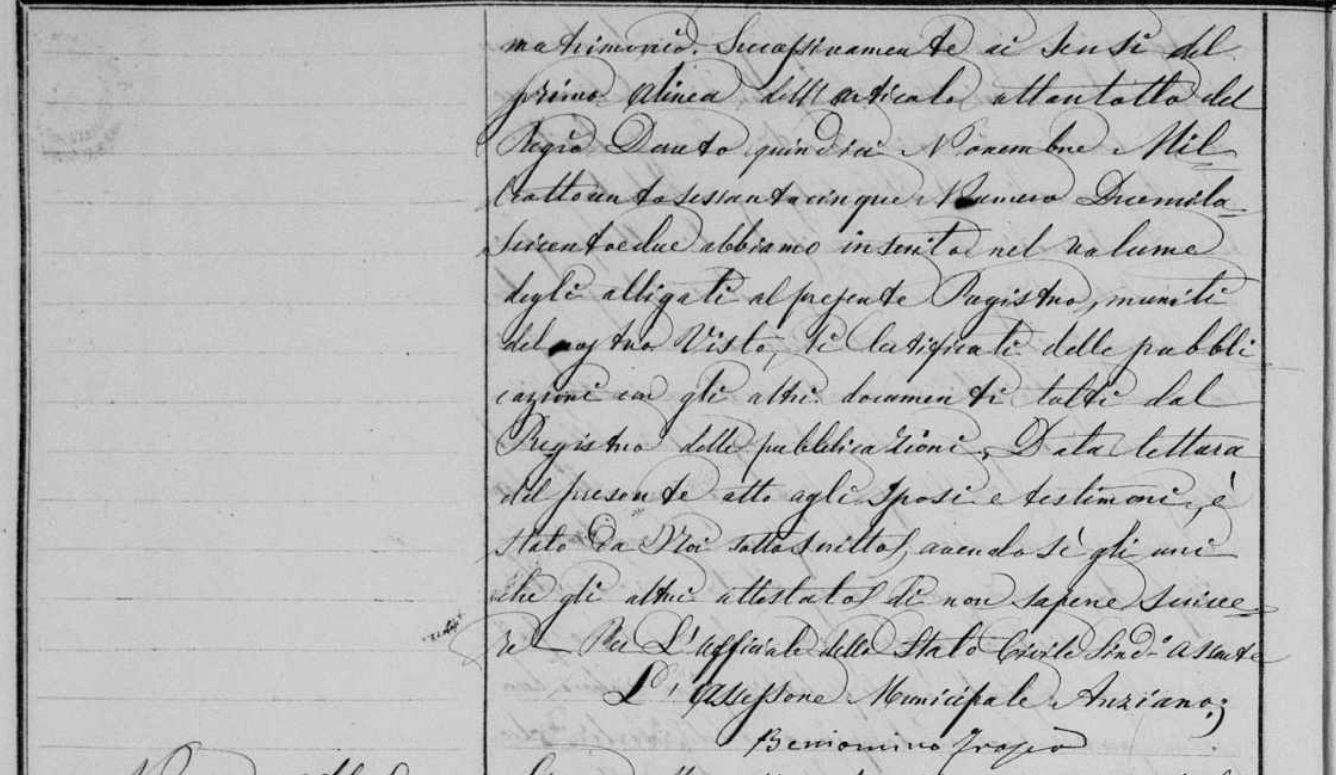 matrimonio. Successivamente ai sensi del
primo alinea dell'articolo ottantotto del
Regio Decreto quindici Novembre Mil
lottocentosessantacinque Numero Duemila
seicentoedue abbiamo inserito nel volume
degli alligati al presente Registro, muniti
del nostro Visto, li Certificati delle pubbli
cazioni con gli altri documenti tolti dal
Registro delle pubblicazioni. Data lettura
del presente atto agli Sposi e testimoni, è
stato da Noi sottoscritto, avendo sì gli uni
che gli altri attestato di non sapere scrive
re — Per L'Officiale dello Stato Civile Sind.° assente
L'Assessore Municipale Anziano;
Beniamino